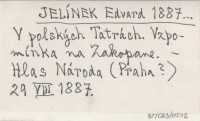 JELÍNEK Edvard 1887...
V polských Tatrách. Vzpo-
mínka na Zakopane. —
Hlas Národa (Praha?)
29 VIII 1887